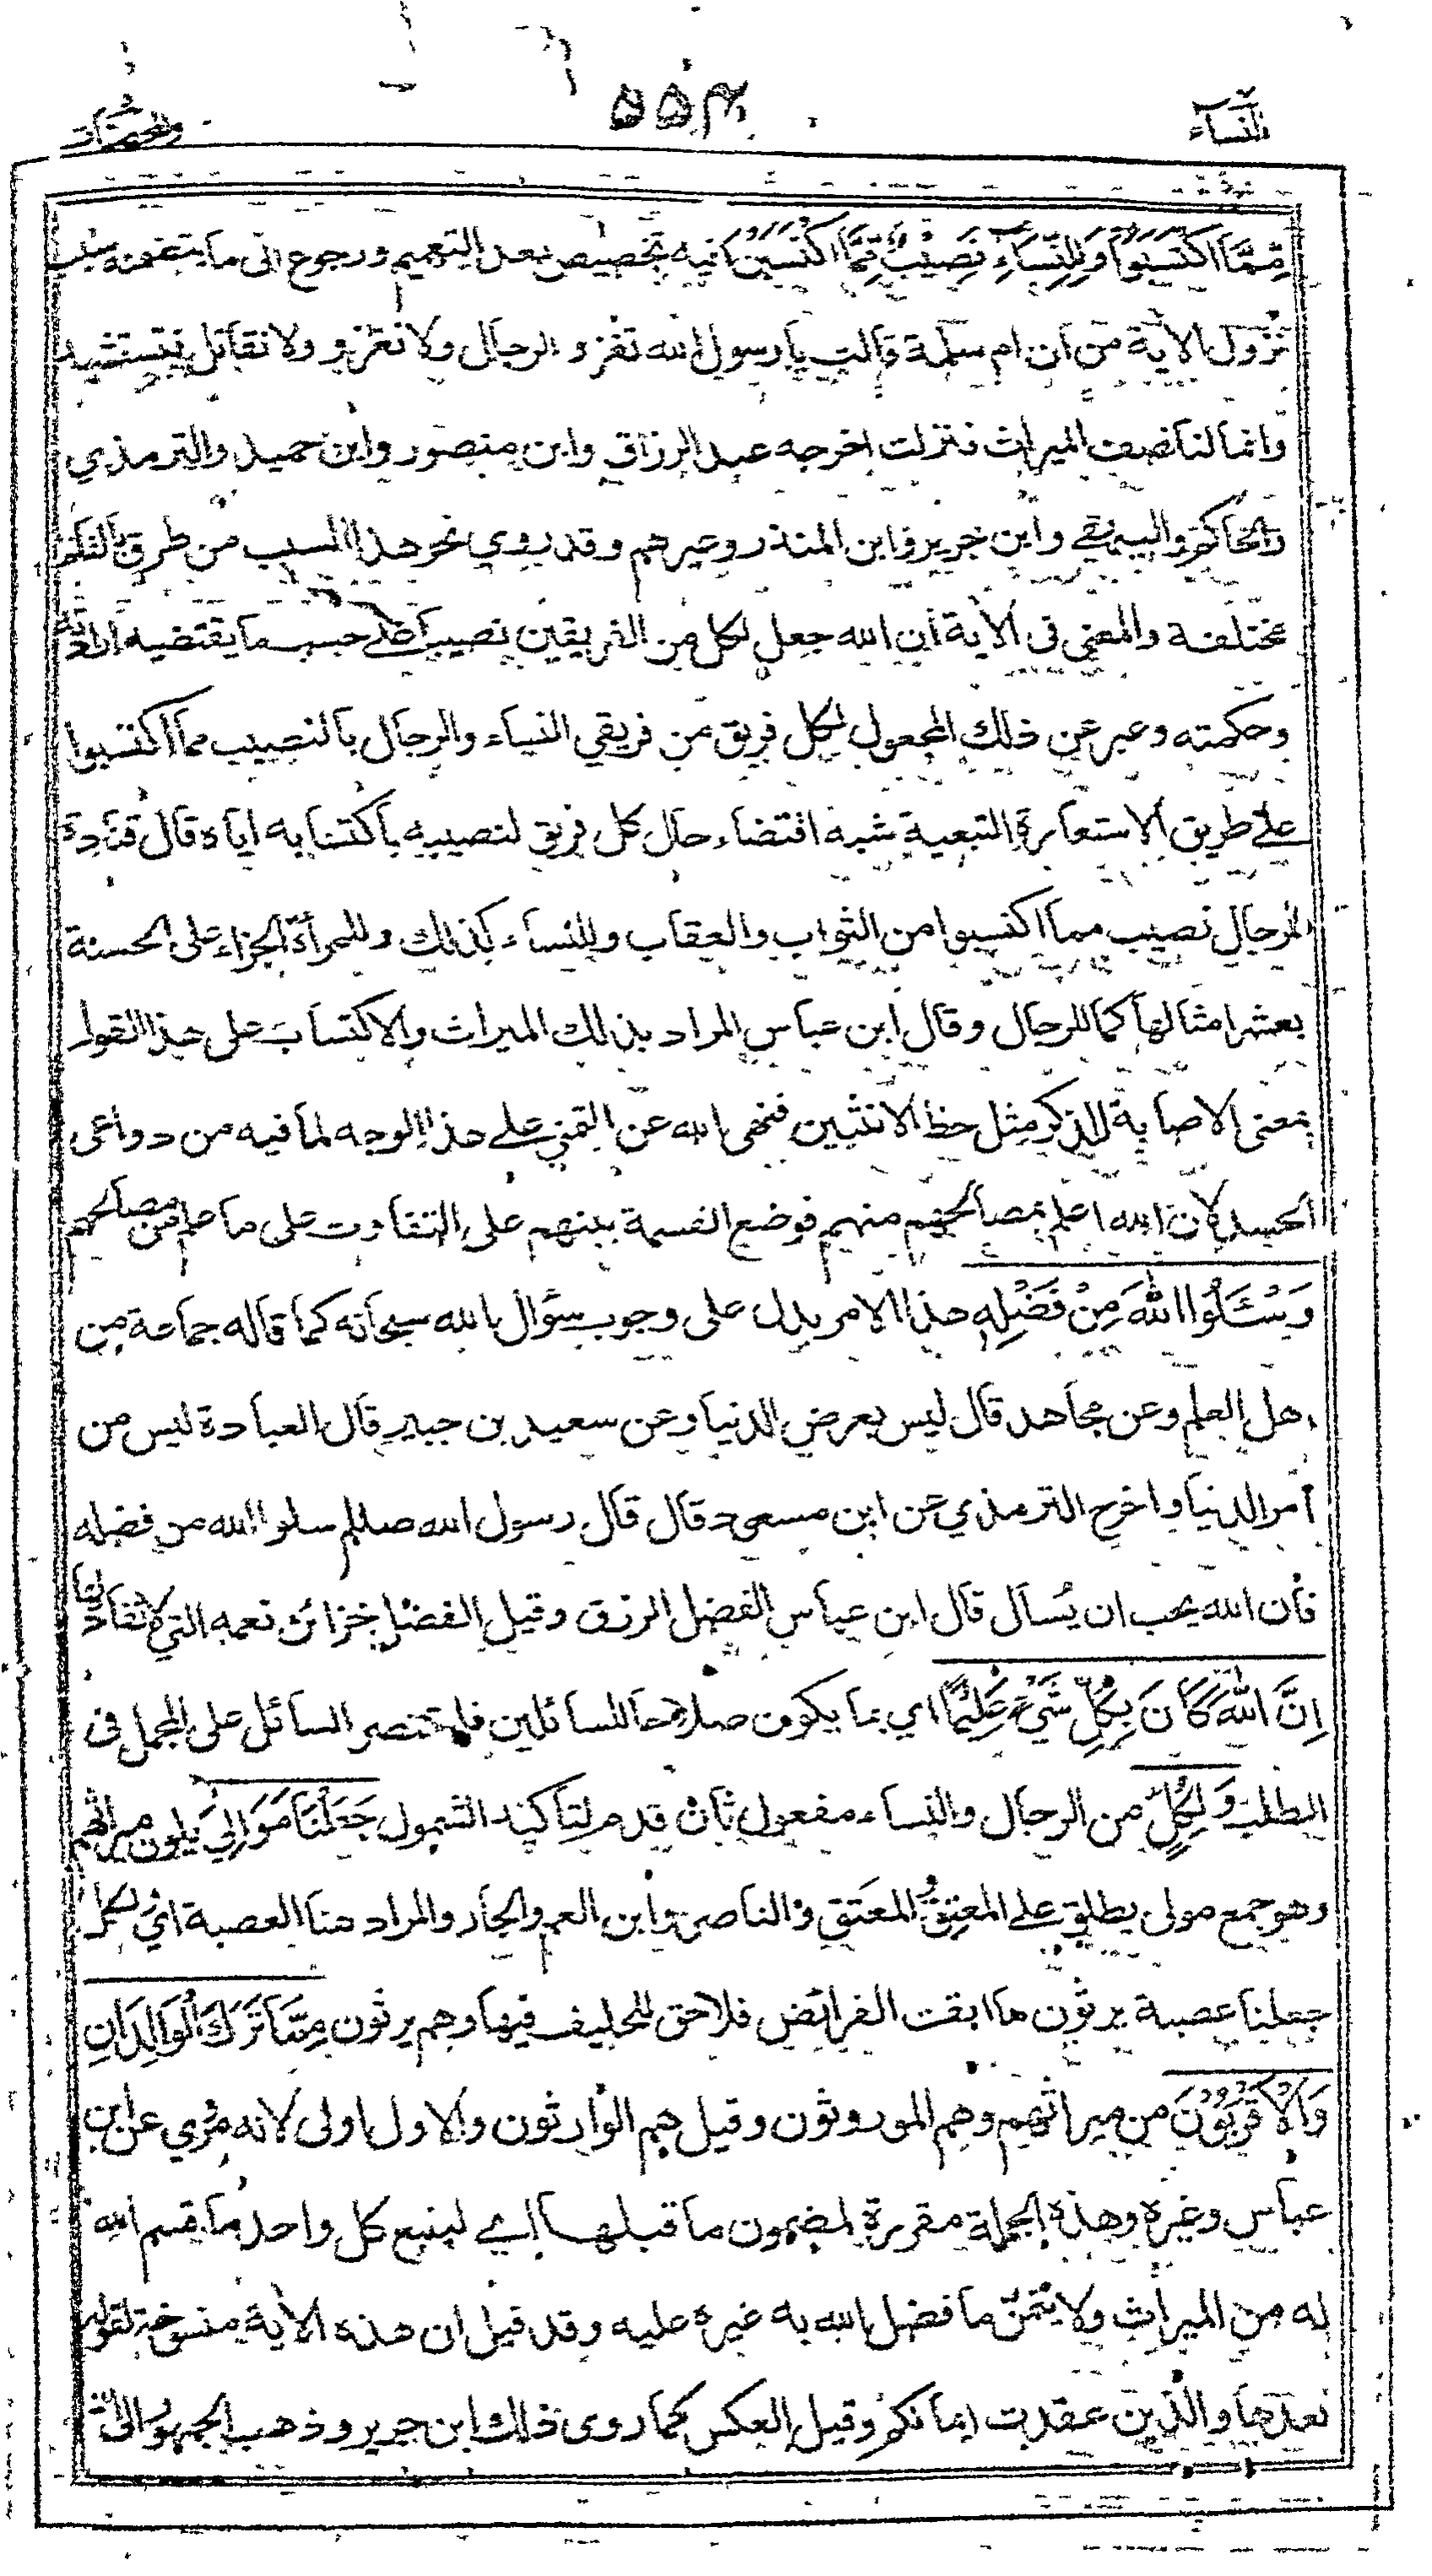 النساء ٥٥٤ والمحصنات
مِّمَّا اكْتَسَبُوا وَلِلنِّسَاءِ نَصِيْبٌ مِّمَّا اكْتَسَبْنَ فيه تخصيص بعد التعميم ورجوع الى ما يتضمنه سبب
نزول الآية من ان ام سلمة قالت يا رسول الله تغزو الرجال ولا نغزو ولا نقاتل فنستشهد
وانما لنا نصف الميراث فنزلت اخرجه عبد الرزاق وابن منصور وابن حميد والترمذي
والحاكم والبيهقي وابن جرير وابن المنذر وغيرهم وقد روي نحو هذا السبب من طرق بالفاظ
مختلفة والمعنى فى الآية ان الله جعل لكل من الفريقين نصيبا على حسب ما يقتضيه ارادته
وحكمته وعبر عن ذلك المجعول لكل فريق من فريقي النساء والرجال بالنصيب مما اكتسبوا
على طريق الاستعارة التبعية شبه اقتضاء حال كل فريق لنصيبه باكتسابه اياه قال قتادة
للرجال نصيب مما اكتسبوا من الثواب والعقاب وللنساء كذلك وللمرأة الجزاء على الحسنة
بعشر امثالها كما للرجال وقال ابن عباس المراد بذلك الميراث والاكتساب على هذا القول
بمعنى الاصابة للذكر مثل حظ الانثيين فنهى الله عن التمني على هذا الوجه لما فيه من دواعى
الحسد لان الله اعلم بمصالحهم منهم فوضع القسمة بينهم على التفاوت على ما علم من مصالحهم
وَسْئَلُوا اللهَ مِنْ فَضْلِهٖ هذا الامر يدل على وجوب سؤال الله سبحانه كما قاله جماعة من
اهل العلم وعن مجاهد قال ليس بعرض الدنيا وعن سعيد بن جبير قال العبادة ليس من
أمر الدنيا واخرج الترمذي عن ابن مسعود قال قال رسول الله صللم سلوا الله من فضله
فان الله يحب ان يُسأل قال ابن عباس الفضل الرزق وقيل الفضل خزائن نعمه التي لا نفاد لها
اِنَّ اللهَ كَانَ بِكُلِّ شَيْءٍ عَلِيْمًا اي بما يكون صلاحا للسائلين فليقتصر السائل على المجمل فى
الطلب وَلِكُلٍّ من الرجال والنساء مفعول ثان قدم لتأكيد الشمول جَعَلْنَا مَوَالِيَ يلون ميراثهم
وهو جمع مولى يطلق على المعتِق والمعتَق والناصر وابن العم والجار والمراد هنا العصبة اي لكل
جعلنا عصبة يرثون ما ابقت الفرائض فلا حق للحليف فيها وهم يرثون مِمَّا تَرَكَ الْوَالِدَانِ
وَالْاَقْرَبُوْنَ من ميراثهم وهم الموروثون وقيل هم الوارثون والاول اولى لانه مروي عن ابن
عباس وغيره وهذه الجملة مقررة لمضمون ما قبلها اي ليتبع كل واحد ما قسم الله
له من الميراث ولا يتمنّ ما فضل الله به غيره عليه وقد قيل ان هذه الآية منسوخة لقوله
بعدها والذين عقدت ايمانكم وقيل العكس كما روى ذلك ابن جرير وذهب الجمهور الى ان